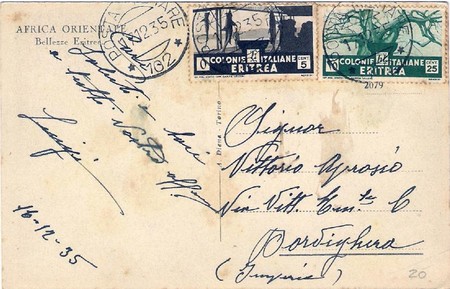 AFRICA ORIENTALE
Bellezze Eritree
POSTA MILITARE
12.35
162
COLONIE ITALIANE
CENT 5
ERITREA
COLONIE ITALIANE
CENT 25
ERITREA
2079
Saluti
Luigi
16-12-35
A. Diena Torino
Signor
Vittorio Aprosio
Via Vitt. Em.
Bordighera
(Imperia)
20